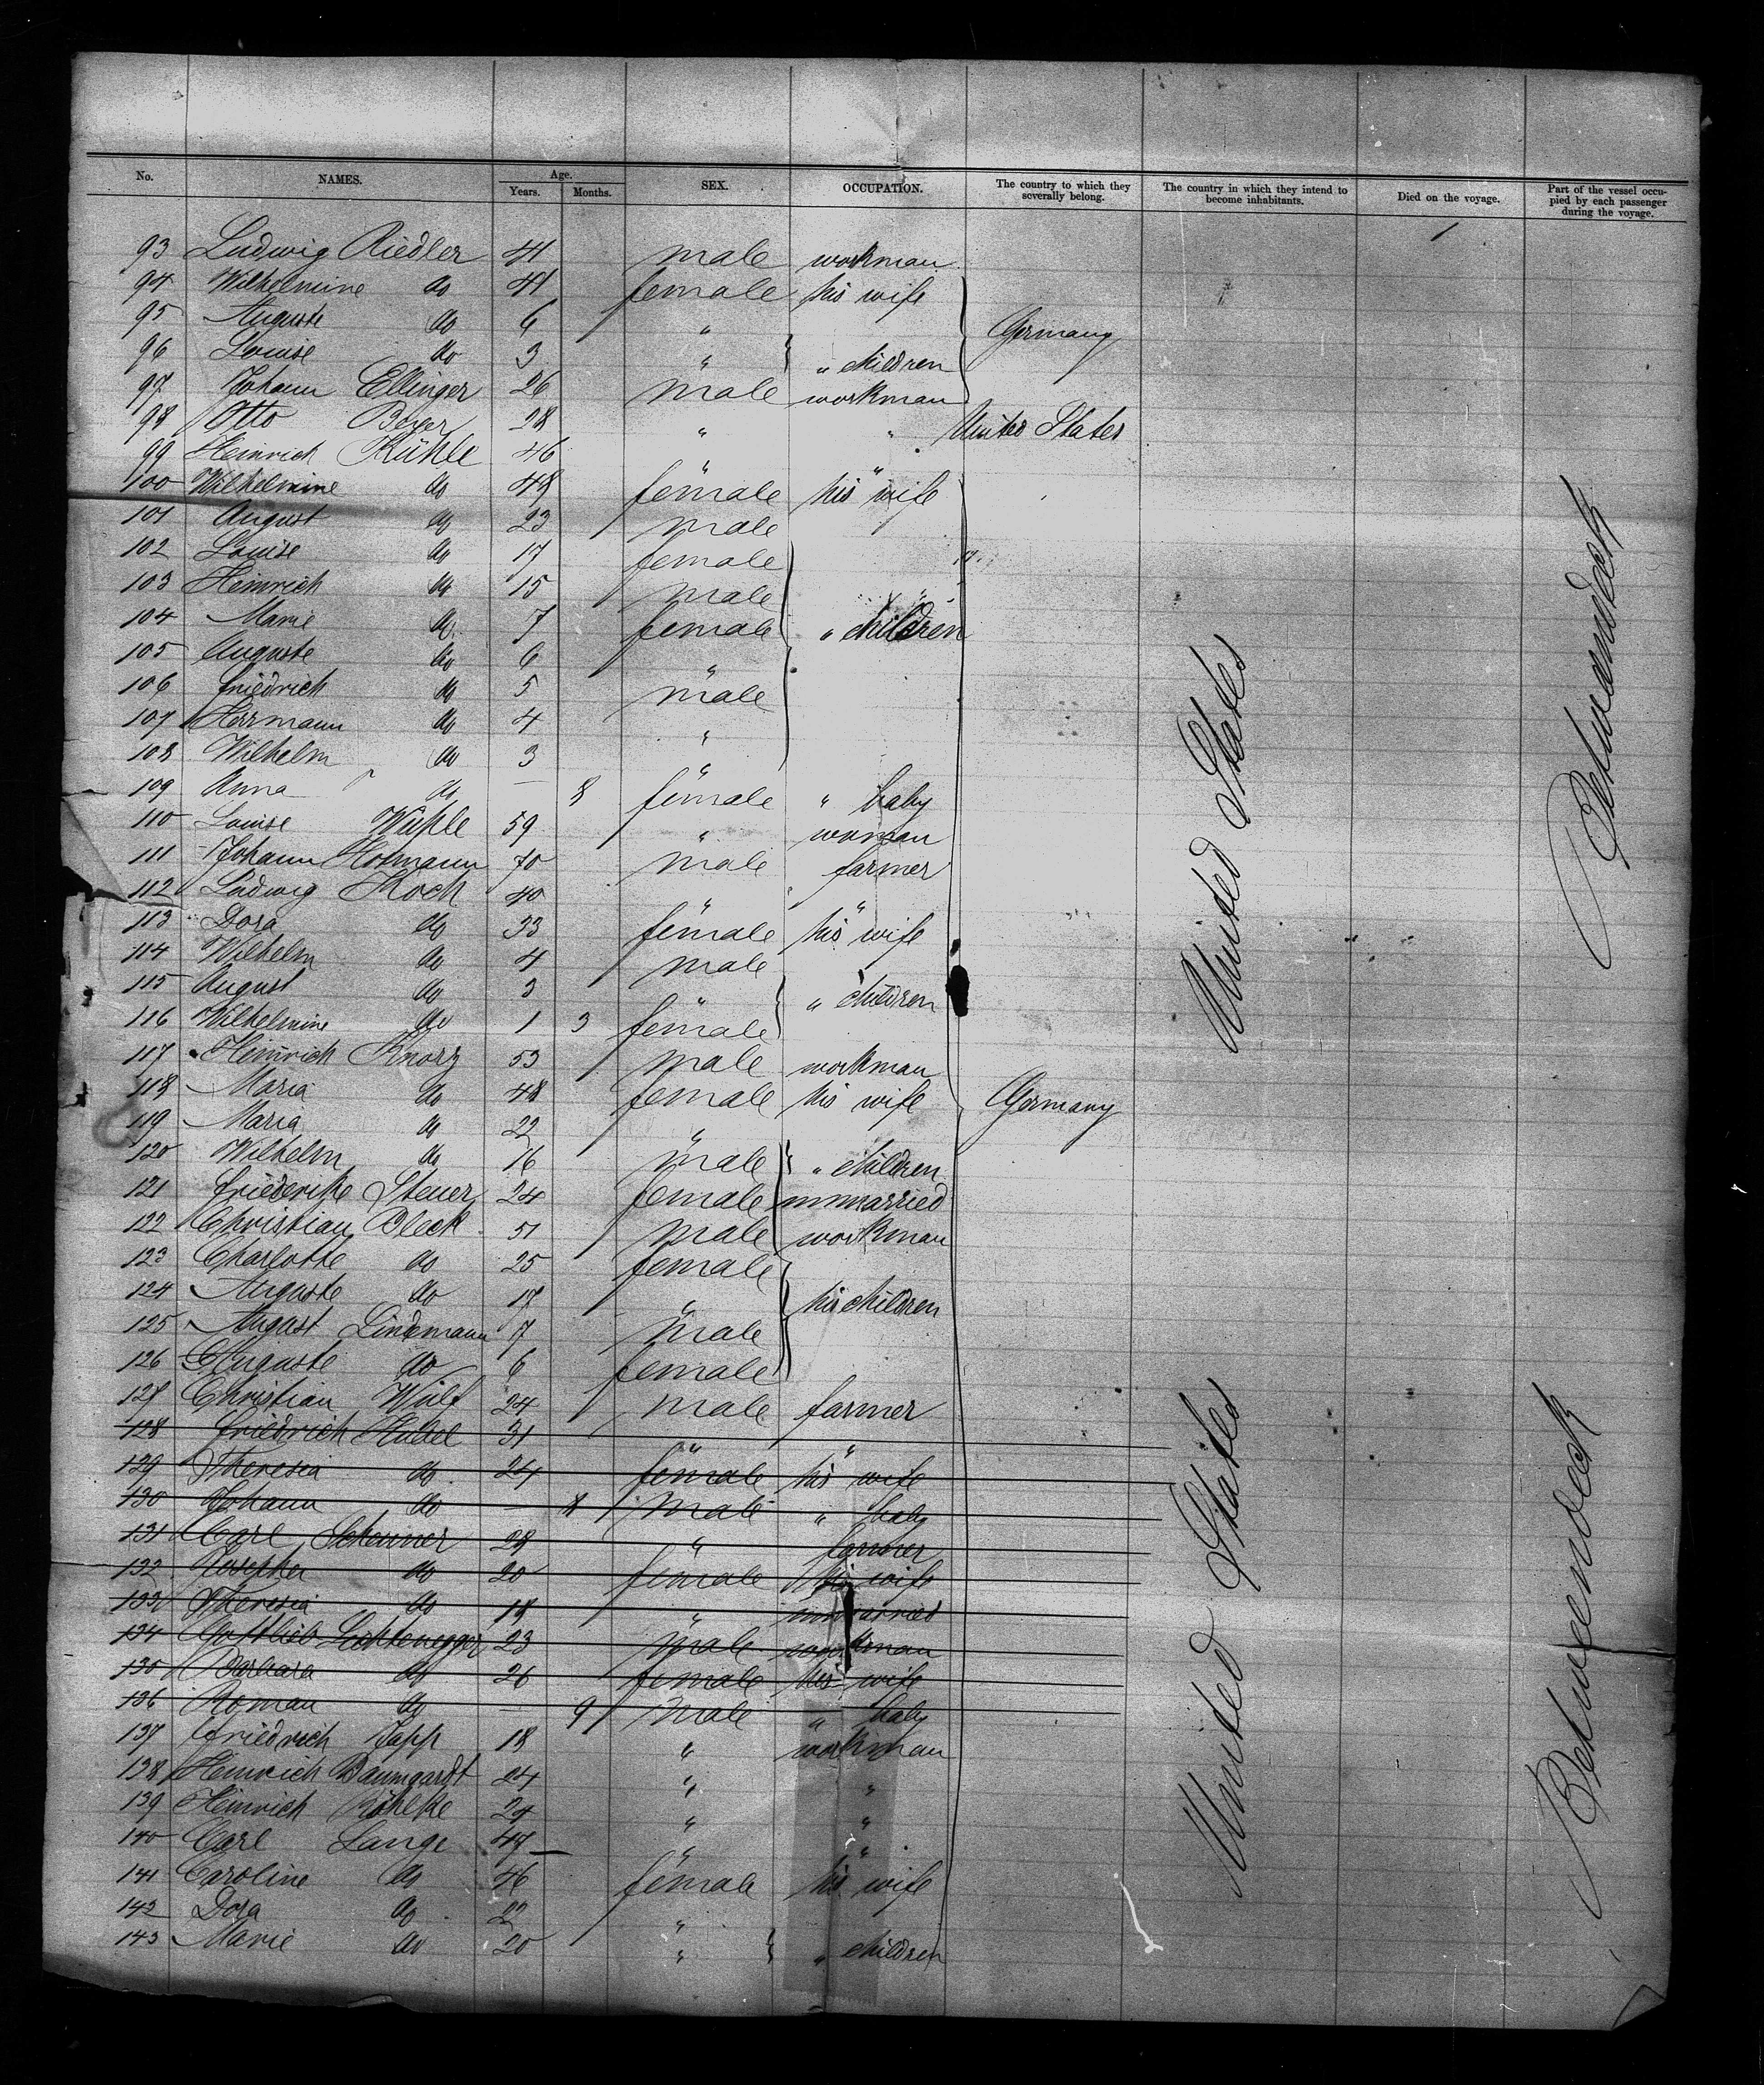 No. NAMES. Age. Years. Months. SEX. OCCUPATION. The country to which they severally belong. The country in which they intend to become inhabitants. Died on the voyage. Part of the vessel occupied by each passenger during the voyage.
93 Ludwig Riedler 41 male workman
94 Wilhelmine do 41 female his wife
95 Auguste do 6 " Germany
96 Louise do 3 " " children
97 Johann Ellinger 26 male workman
98 Otto Beyer 28 " " United States
99 Heinrich Kühle 46 " "
100 Wilhelmine do 48 female his wife
101 August do 23 male
102 Louise do 17 female
103 Heinrich do 15 male
104 Marie do 7 female " children
105 Auguste do 6 "
106 Friedrich do 5 male
107 Herrmann do 4 "
108 Wilhelm do 3 "
109 Anna do — 8 female " baby
110 Louise 59 " woman
111 Johann Hofmann 70 male farmer
112 Ludwig Koch 40 " "
113 Dora do 33 female his wife
114 Wilhelm do 4 male
115 August do 3 " " children
116 Wilhelmine do 1 3 female
117 Heinrich Knorz 53 male workman
118 Maria do 48 female his wife Germany
119 Maria do 22 "
120 Wilhelm do 16 male " children
121 Friederike Steuer 24 female unmarried
122 Christian Bleck 51 male workman
123 Charlotte do 25 female
124 Auguste do 17 " his children
125 August Lindemann 7 male
126 Auguste do 6 female
127 Christian Wulf 24 male farmer
128 Friedrich 31 " "
129 Theresia do 24 female his wife
130 Johann do — 8 male " baby
131 Carl 28 " farmer
132 Josepha do 20 female his wife
133 Theresia do 18 " unmarried
134 Gottlieb Lichtenegger 23 male workman
135 Barbara do 26 female his wife
136 Roman do — 9 male " baby
137 Friedrich Japp 18 " workman
138 Heinrich Baumgardt 24 " "
139 Heinrich Röhlke 24 " "
140 Carl Lange 47 " "
141 Caroline do 46 female his wife
142 Dora do 22 "
143 Marie do 20 " " children
United States
United States
Betweendeck
Betweendeck